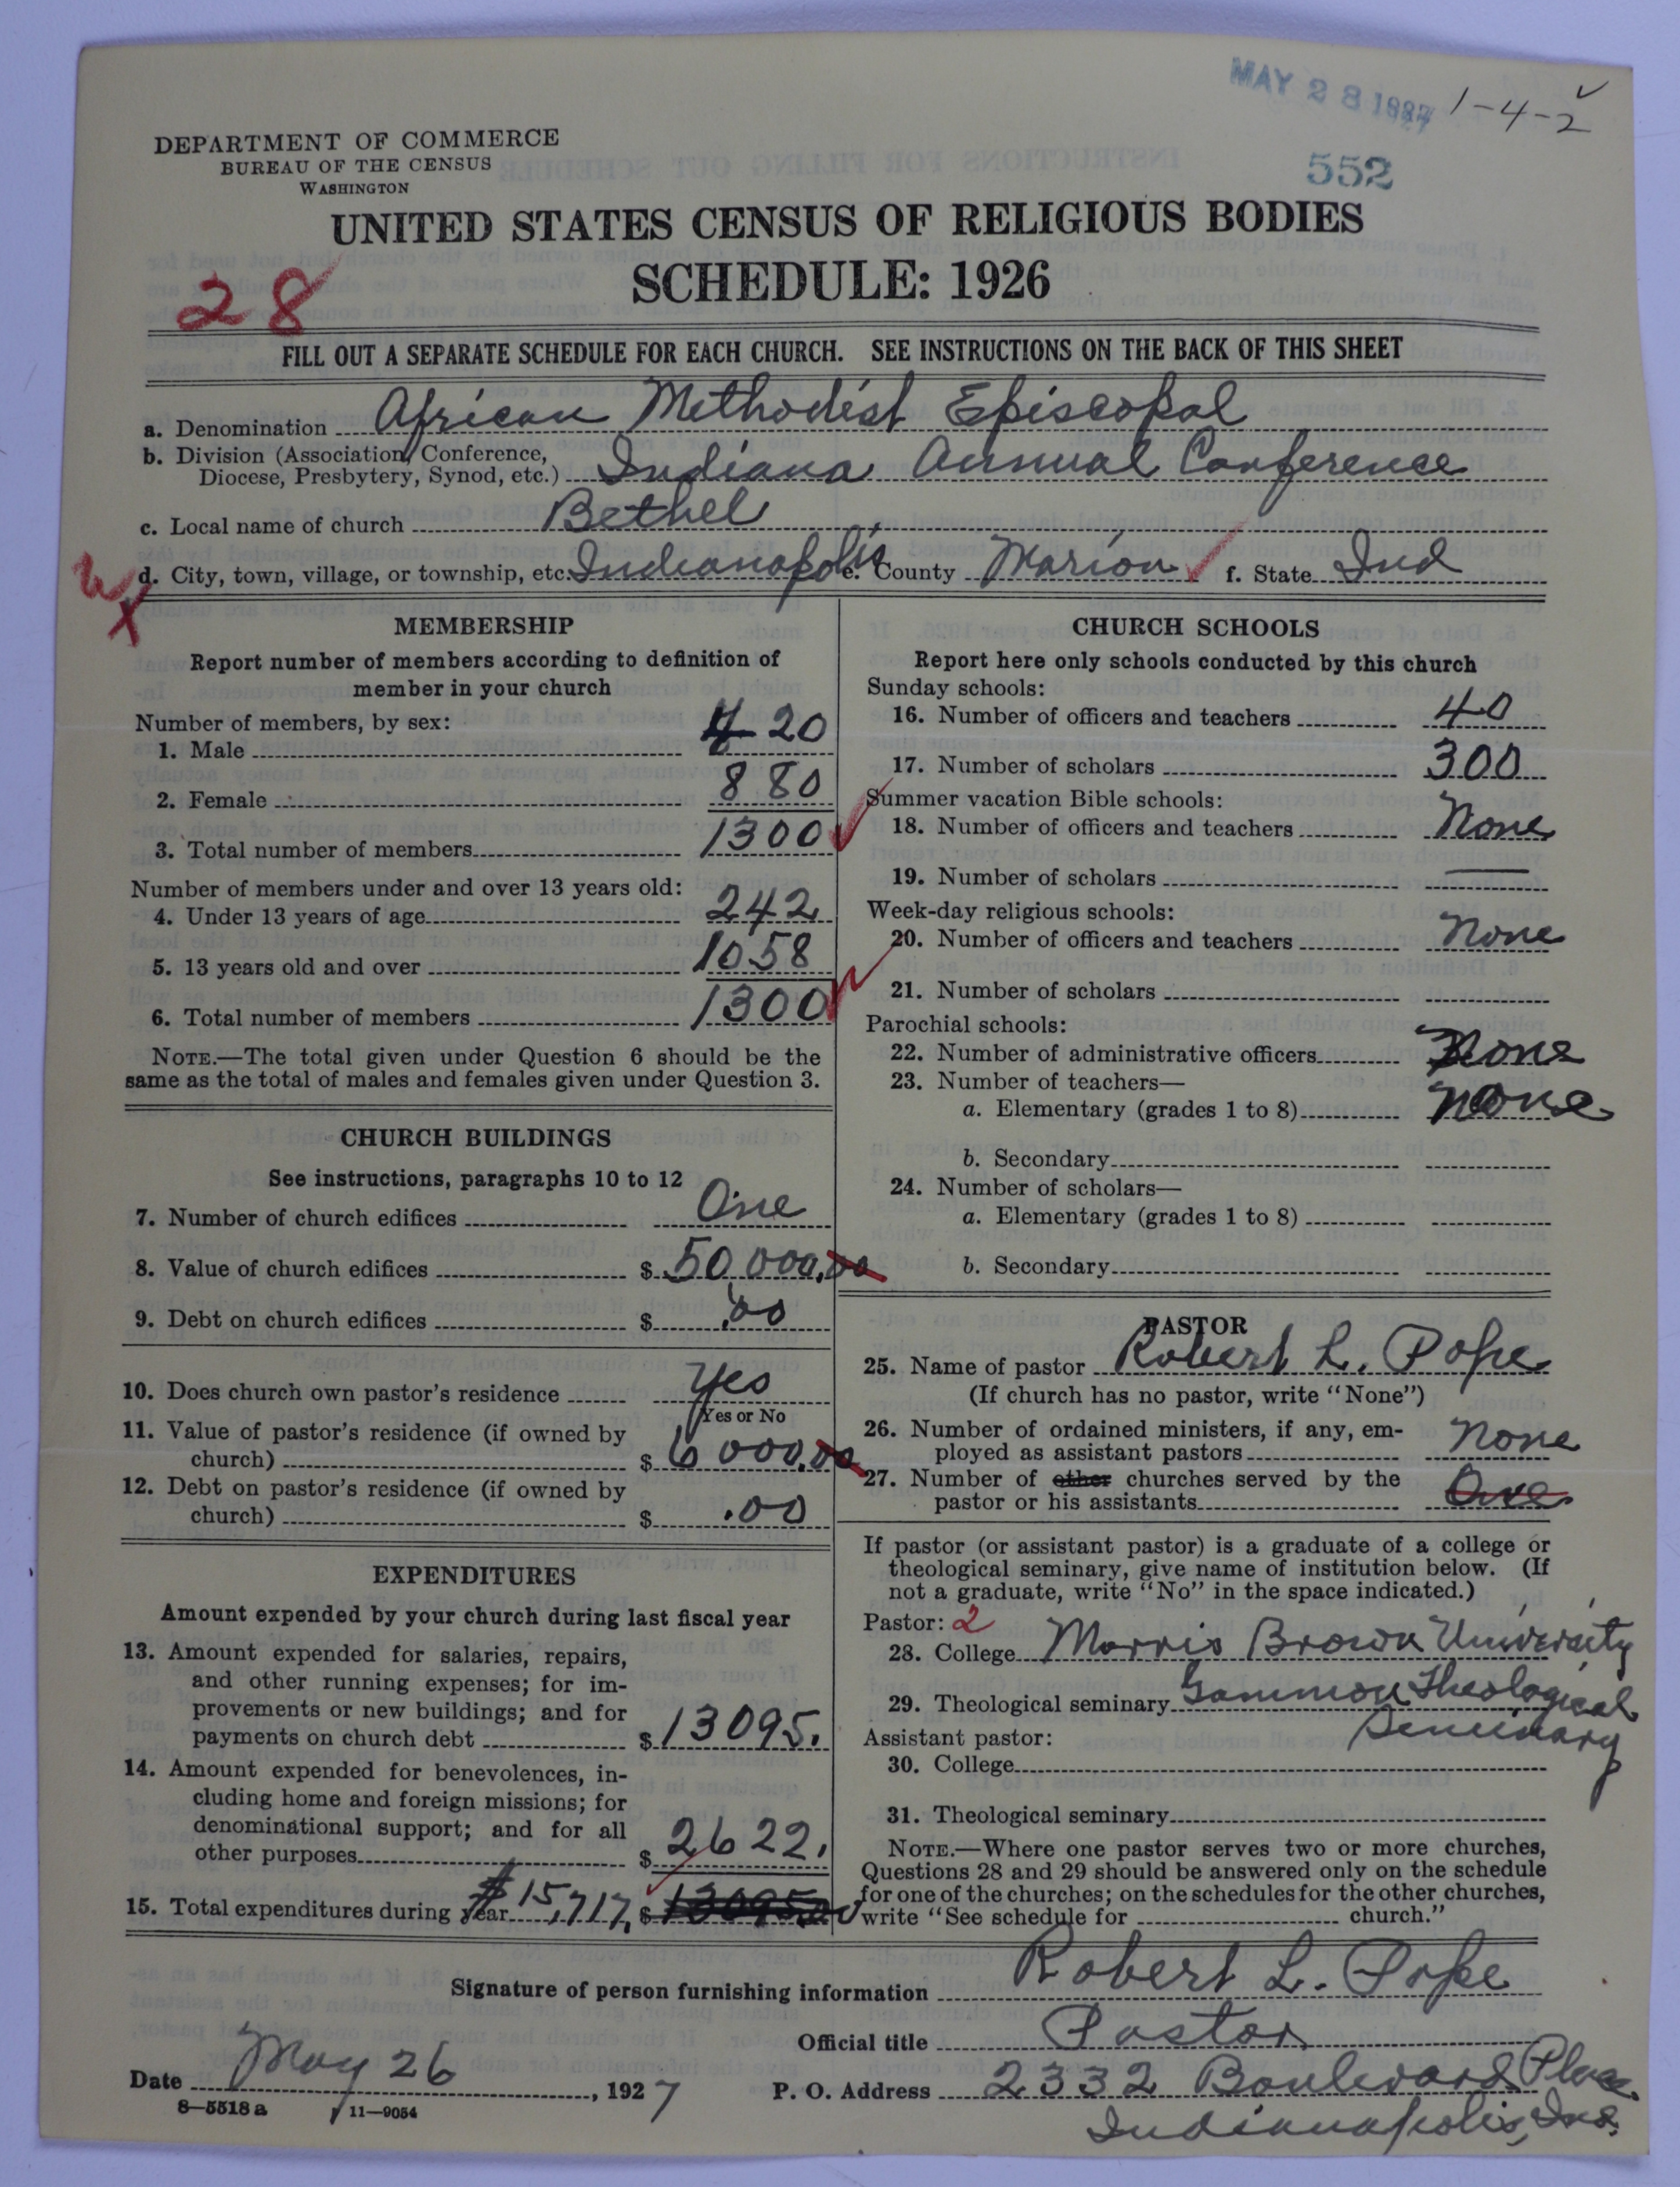 MAY 28 1927
1-4-2
552
DEPARTMENT OF COMMERCE
BUREAU OF THE CENSUS
WASHINGTON
UNITED STATES CENSUS OF RELIGIOUS BODIES
SCHEDULE: 1926
28
FILL OUT A SEPARATE SCHEDULE FOR EACH CHURCH. SEE INSTRUCTIONS ON THE BACK OF THIS SHEET
a. Denomination African Methodist Episcopal
b. Division (Association, Conference,
Diocese, Presbytery, Synod, etc.) Indiana Annual Conference
c. Local name of church Bethel
d. City, town, village, or township, etc. Indianapolis e. County Marion f. State Ind
MEMBERSHIP
Report number of members according to definition of
member in your church
Number of members, by sex:
1. Male 420
2. Female 880
3. Total number of members 1300
Number of members under and over 13 years old:
4. Under 13 years of age 242
5. 13 years old and over 1058
6. Total number of members 1300
NOTE.—The total given under Question 6 should be the
same as the total of males and females given under Question 3.
CHURCH BUILDINGS
See instructions, paragraphs 10 to 12
7. Number of church edifices One
8. Value of church edifices $ 50,000.00
9. Debt on church edifices $ .00
10. Does church own pastor's residence Yes
Yes or No
11. Value of pastor's residence (if owned by
church) $ 6000.00
12. Debt on pastor's residence (if owned by
church) $ .00
EXPENDITURES
Amount expended by your church during last fiscal year
13. Amount expended for salaries, repairs,
and other running expenses; for im-
provements or new buildings; and for
payments on church debt $ 13095.
14. Amount expended for benevolences, in-
cluding home and foreign missions; for
denominational support; and for all
other purposes $ 2622.
15. Total expenditures during year $15,717. $ 13095.00
CHURCH SCHOOLS
Report here only schools conducted by this church
Sunday schools:
16. Number of officers and teachers 40
17. Number of scholars 300
Summer vacation Bible schools:
18. Number of officers and teachers None
19. Number of scholars
Week-day religious schools:
20. Number of officers and teachers None
21. Number of scholars
Parochial schools:
22. Number of administrative officers None
23. Number of teachers—
a. Elementary (grades 1 to 8) None
b. Secondary
24. Number of scholars—
a. Elementary (grades 1 to 8)
b. Secondary
PASTOR
25. Name of pastor Robert L. Pope
(If church has no pastor, write "None")
26. Number of ordained ministers, if any, em-
ployed as assistant pastors None
27. Number of other churches served by the
pastor or his assistants One
If pastor (or assistant pastor) is a graduate of a college or
theological seminary, give name of institution below. (If
not a graduate, write "No" in the space indicated.)
Pastor: 2
28. College Morris Brown University
29. Theological seminary Gammon Theological
Seminary
Assistant pastor:
30. College
31. Theological seminary
NOTE.—Where one pastor serves two or more churches,
Questions 28 and 29 should be answered only on the schedule
for one of the churches; on the schedules for the other churches,
write "See schedule for church."
Signature of person furnishing information Robert L. Pope
Official title Pastor
Date May 26, 1927 P. O. Address 2332 Boulevard Place
Indianapolis, Ind.
8—5518 a 11—9054